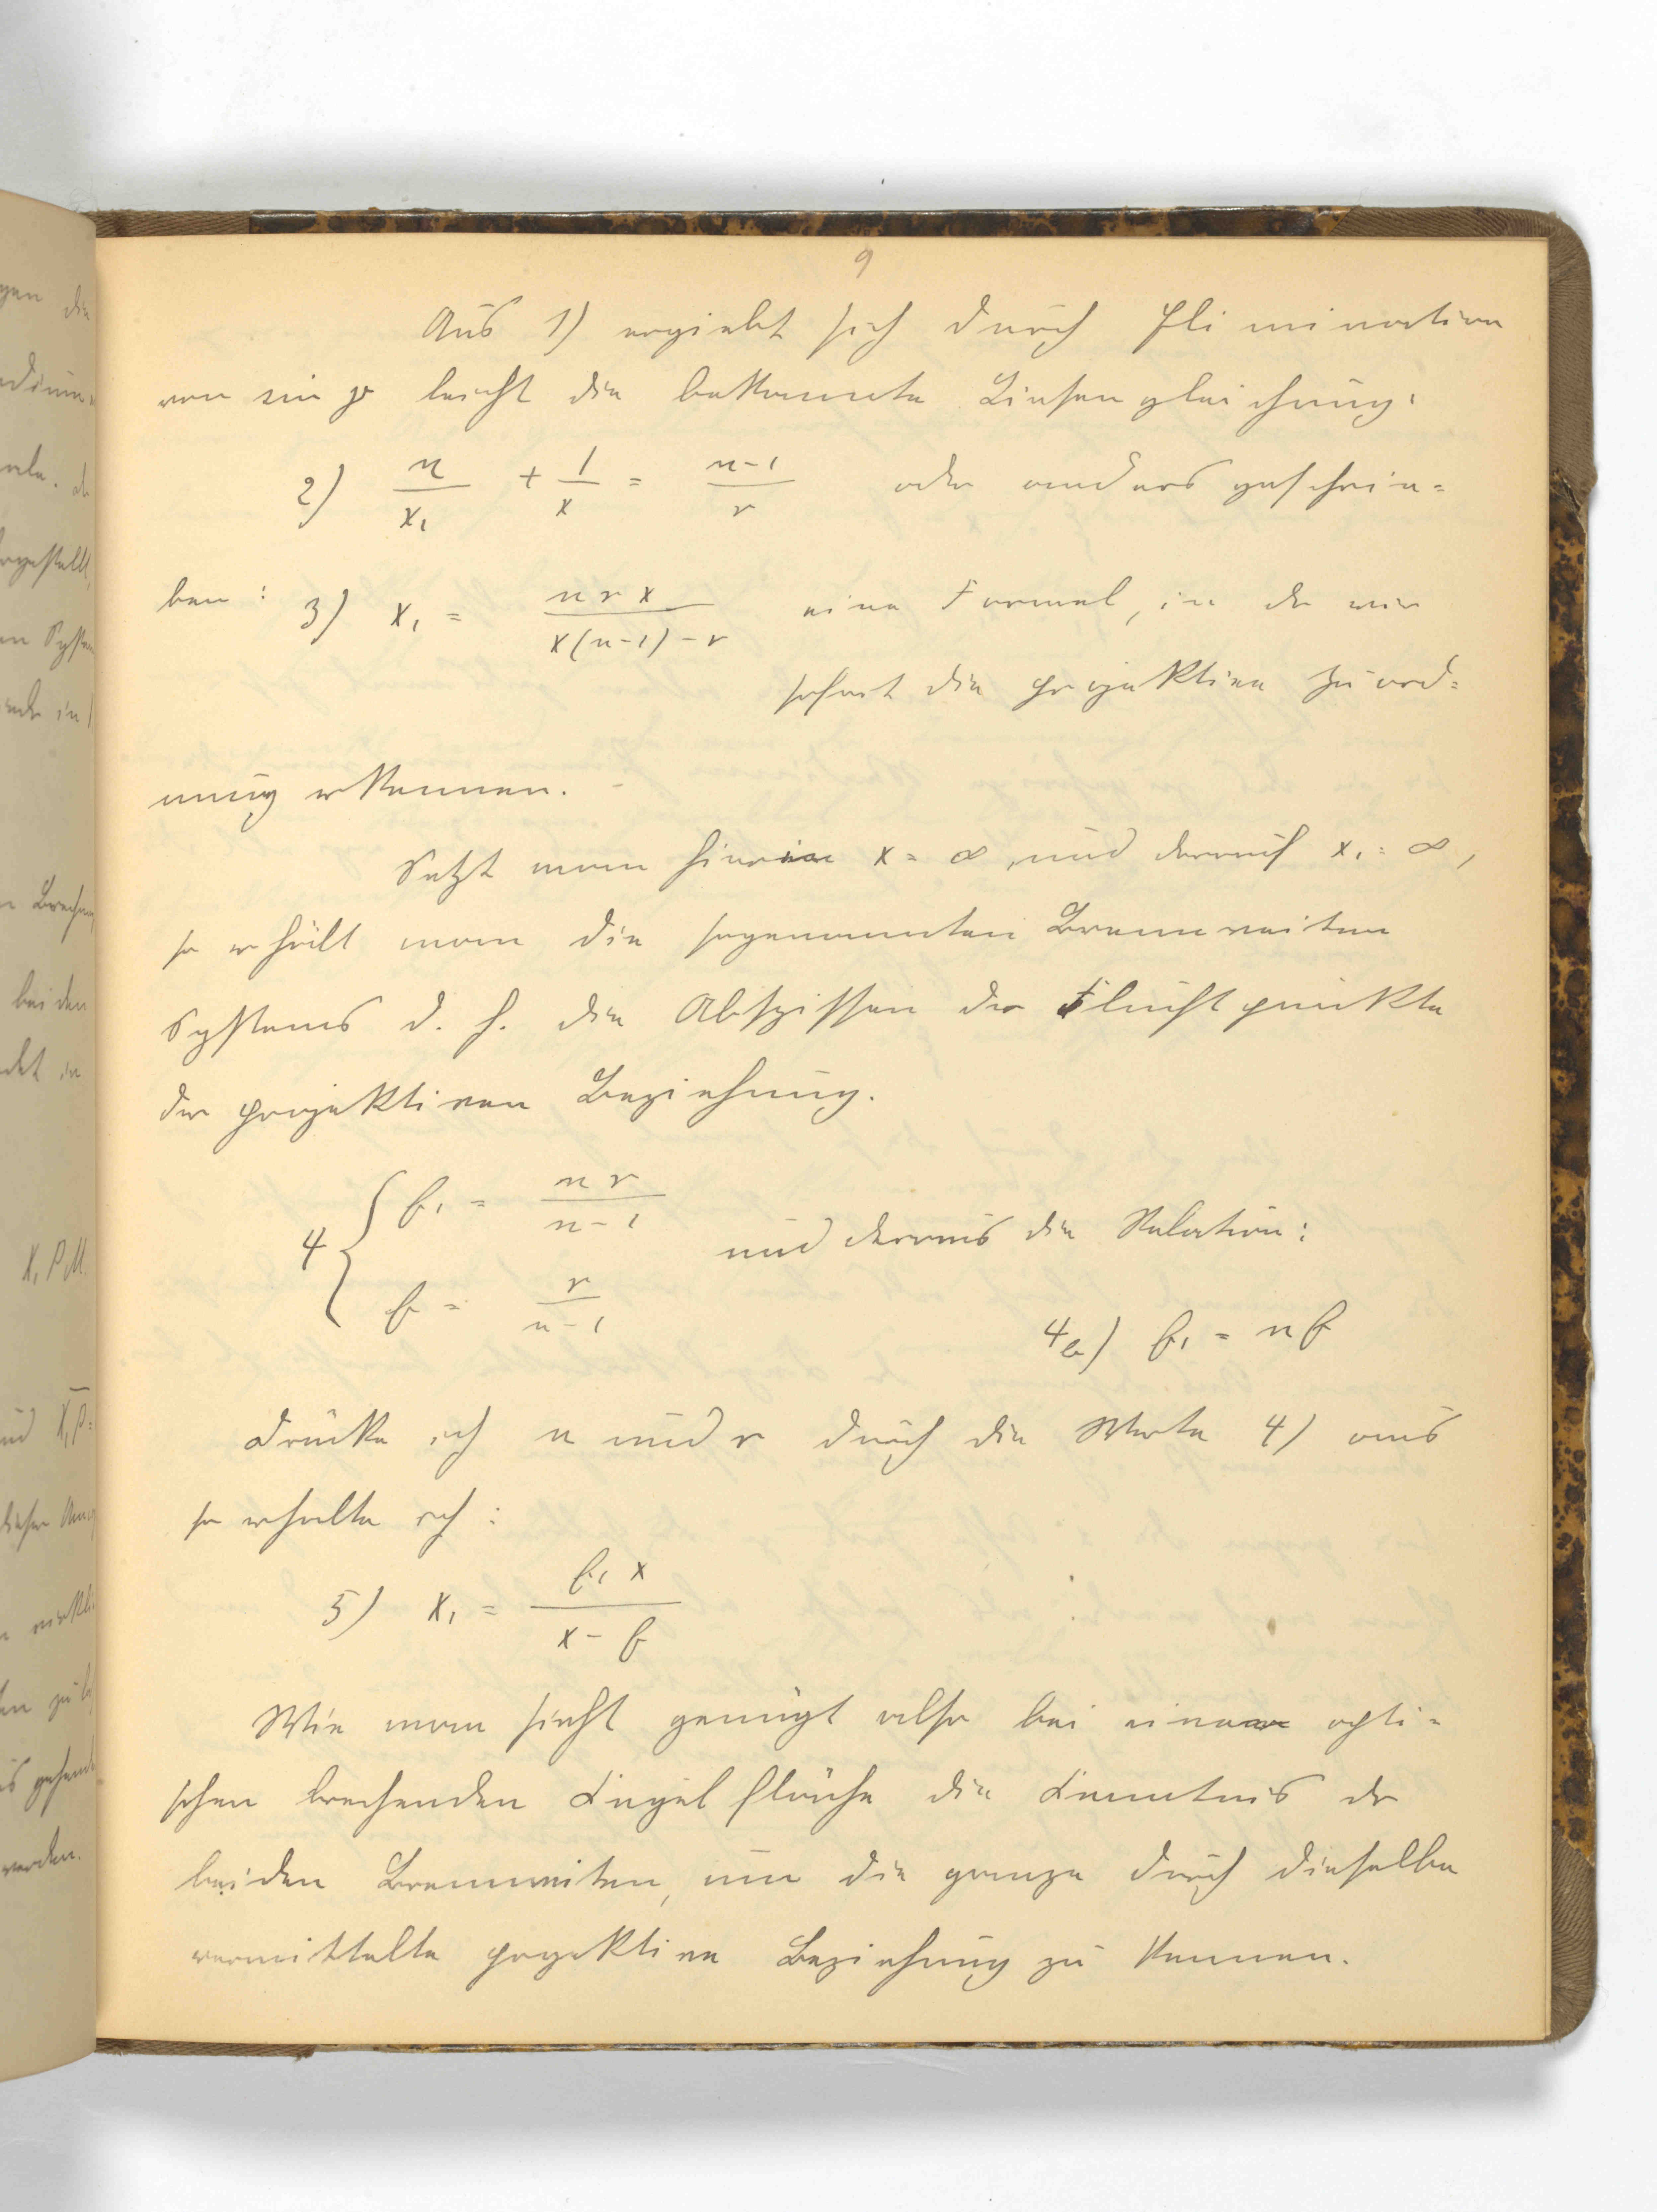 9
Aus 1) ergiebt sich durch Elimination
von sin φ leicht die bekannte Linsengleichung:
2) n/x₁ + 1/x = n-1/r oder anders geschrie=
ben: 3) x₁ = n r x / x(n-1)-r eine Formel, in der wir
sofort die projektive Zuord=
nung erkennen.
Setzt man hierin x = ∞, und darauf x₁ = ∞,
so erhält man die sogenannten Brennweiten
Systems d. h. die Abszissen der Fluchtpunkte
der projektiven Beziehung.
4 { f₁ = n r / n-1
und daraus die Relation:
f = r / n-1
4a) f₁ = n f
Drücke ich n und r durch die Werte 4) aus
so erhalte ich:
5) x₁ = f₁ x / x - f
Wie man sieht genügt also bei einer opti=
schen brechenden Kugelfläche die Kenntnis der
beiden Brennweiten, um die ganze durch dieselbe
vermittelte projektive Beziehung zu kennen.
gen die
bei den
X₁ P M.
werden.